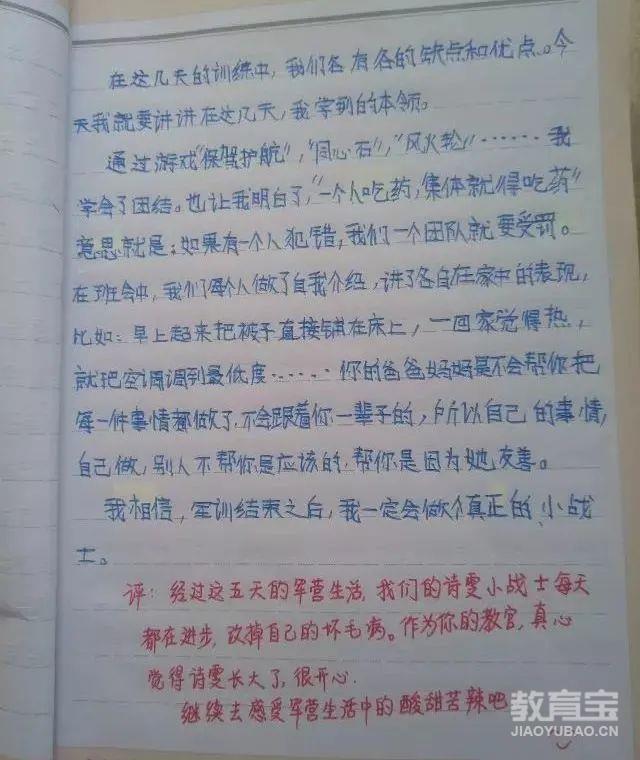 在这几天的训练中，我们各有各的缺点和优点。今
天我就要讲讲在这几天，我学到的本领。
通过游戏“保驾护航”，“同心石”，“风火轮”……我
学会了团结。也让我明白了，“一个人吃药，集体就得吃药”
意思就是：如果有一个人犯错，我们一个团队就要受罚。
在班会中，我们每个人做了自我介绍，讲了各自在家中的表现，
比如：早上起来把被子直接铺在床上，一回家觉得热，
就把空调调到最低度……你的爸爸妈妈是不会帮你把
每一件事情都做了，不会跟着你一辈子的，所以自己的事情，
自己做，别人不帮你是应该的，帮你是因为她友善。
我相信，军训结束之后，我一定会做个真正的小战
士。
评：经过这五天的军营生活，我们的诗雯小战士每天
都在进步，改掉自己的坏毛病。作为你的教官，真心
觉得诗雯长大了，很开心.
继续去感受军营生活中的酸甜苦辣吧
教育宝
JIAOYUBAO.CN